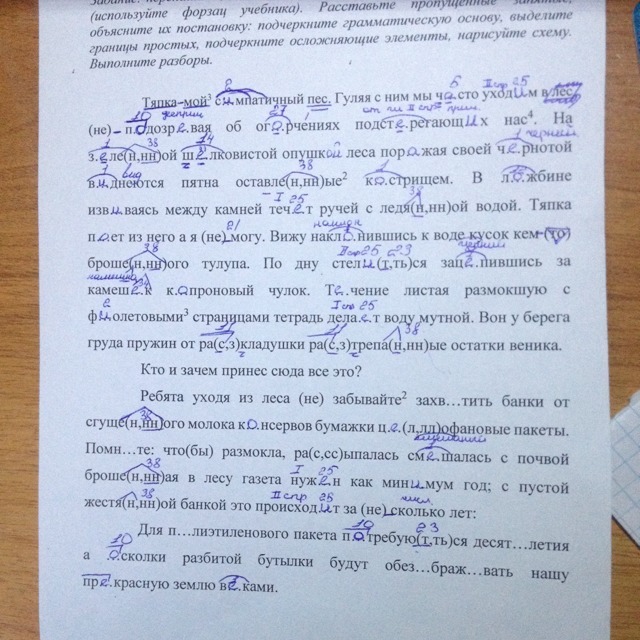 (используйте форзац учебника). Расставьте пропущенные запятые,
объясните их постановку: подчеркните грамматическую основу, выделите
границы простых, подчеркните осложняющие элементы, нарисуйте схему.
Выполните разборы.
Тяпка-мой³ симпатичный пес. Гуляя с ним мы часто уходим в лес
(не) подозревая об огорчениях подстерегающих нас⁴. На
зеле(н,нн)ой шелковистой опушкой леса поражая своей чернотой
виднеются пятна оставле(н,нн)ые² кострищем. В ложбине
извиваясь между камней течет ручей с ледя(н,нн)ой водой. Тяпка
пьет из него а я (не) могу. Вижу наклонившись к воде кусок кем-(то)
броше(н,нн)ого тулупа. По дну стели(т,ть)ся зацепившись за
камешек капроновый чулок. Течение листая размокшую с
фиолетовыми³ страницами тетрадь делает воду мутной. Вон у берега
груда пружин от ра(с,з)кладушки ра(с,з)трепа(н,нн)ые остатки веника.
Кто и зачем принес сюда все это?
Ребята уходя из леса (не) забывайте² захв…тить банки от
сгуще(н,нн)ого молока консервов бумажки це(л,лл)офановые пакеты.
Помн…те: что(бы) размокла, ра(с,сс)ыпалась смешалась с почвой
броше(н,нн)ая в лесу газета нужен как минимум год; с пустой
жестя(н,нн)ой банкой это происходит за (не)сколько лет:
Для п…лиэтиленового пакета потребую(т,ть)ся десят…летия
а осколки разбитой бутылки будут обез…браж…вать нашу
прекрасную землю веками.